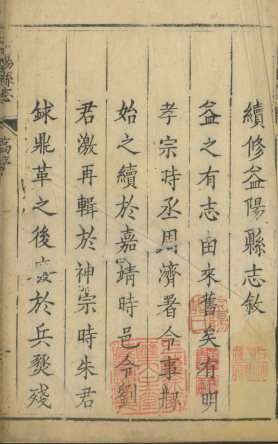 續修益陽縣志敘
益之有志由來舊矣有明
孝宗時丞周濟署令事
始之續於嘉靖時邑令劉
君激再輯於神宗時朱君
鼎革之後於兵燹殘